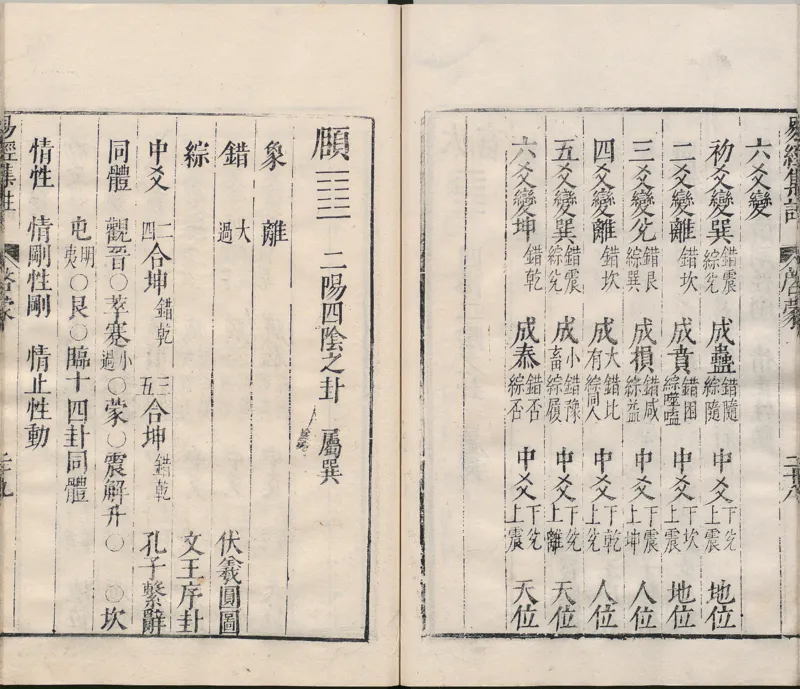 六爻變
初爻變巽 錯震 綜兌 成蠱 錯隨 綜隨 中爻 下兌 上震 地位
二爻變離 錯坎 成賁 錯困 綜噬嗑 中爻 下坎 上震 地位
三爻變兌 錯艮 綜巽 成損 錯咸 綜益 中爻 下震 上坤 人位
四爻變離 錯坎 成大有 錯比 綜同人 中爻 下乾 上兌 人位
五爻變巽 錯震 綜兌 成小畜 錯豫 綜履 中爻 下兌 上離 天位
六爻變坤 錯乾 成泰 錯否 綜否 中爻 下兌 上震 天位
易經集註 啓蒙 二十八
頤 二陽四陰之卦 屬巽
象 離
錯 大過 伏羲圓圖
綜 文王序卦
中爻 二四合坤 錯乾 三五合坤 錯乾 孔子繫辭
同體 觀晉○萃蹇小過○蒙○震解升○ ○坎
屯明夷○艮○臨十四卦同體
情性 情剛性剛 情止性動
易經集註 啓蒙 二十九